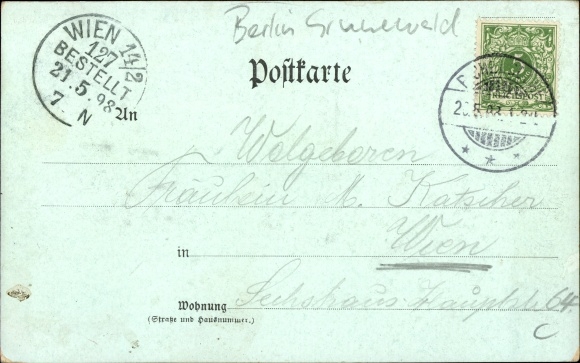 Berlin Grunewald
WIEN 14/2
127
BESTELLT
21.5.98
7. N
Postkarte
An
Wolgeboren
Fräulein M. Katscher
in Wien
Wohnung Sechshaus Hauptstr 64.
(Straße und Hausnummer.)
C